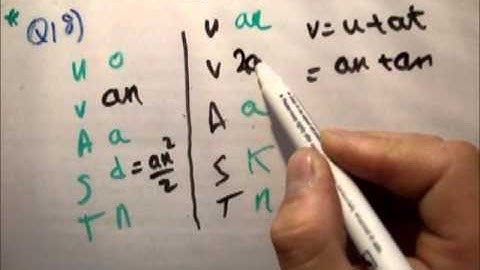 * Q18)
U O
V an
A a
S d = an²/2
T n
U an
V 2a
A a
S K
T n
V = u + at
= an + an